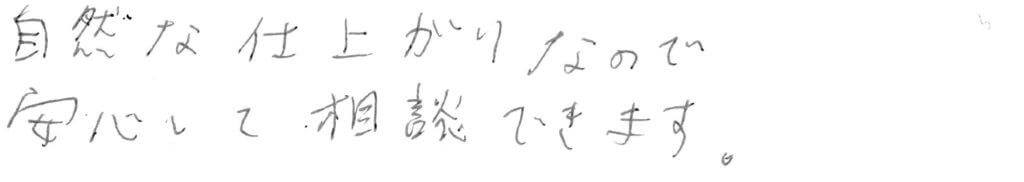 自然な仕上がりなので
安心して相談できます。